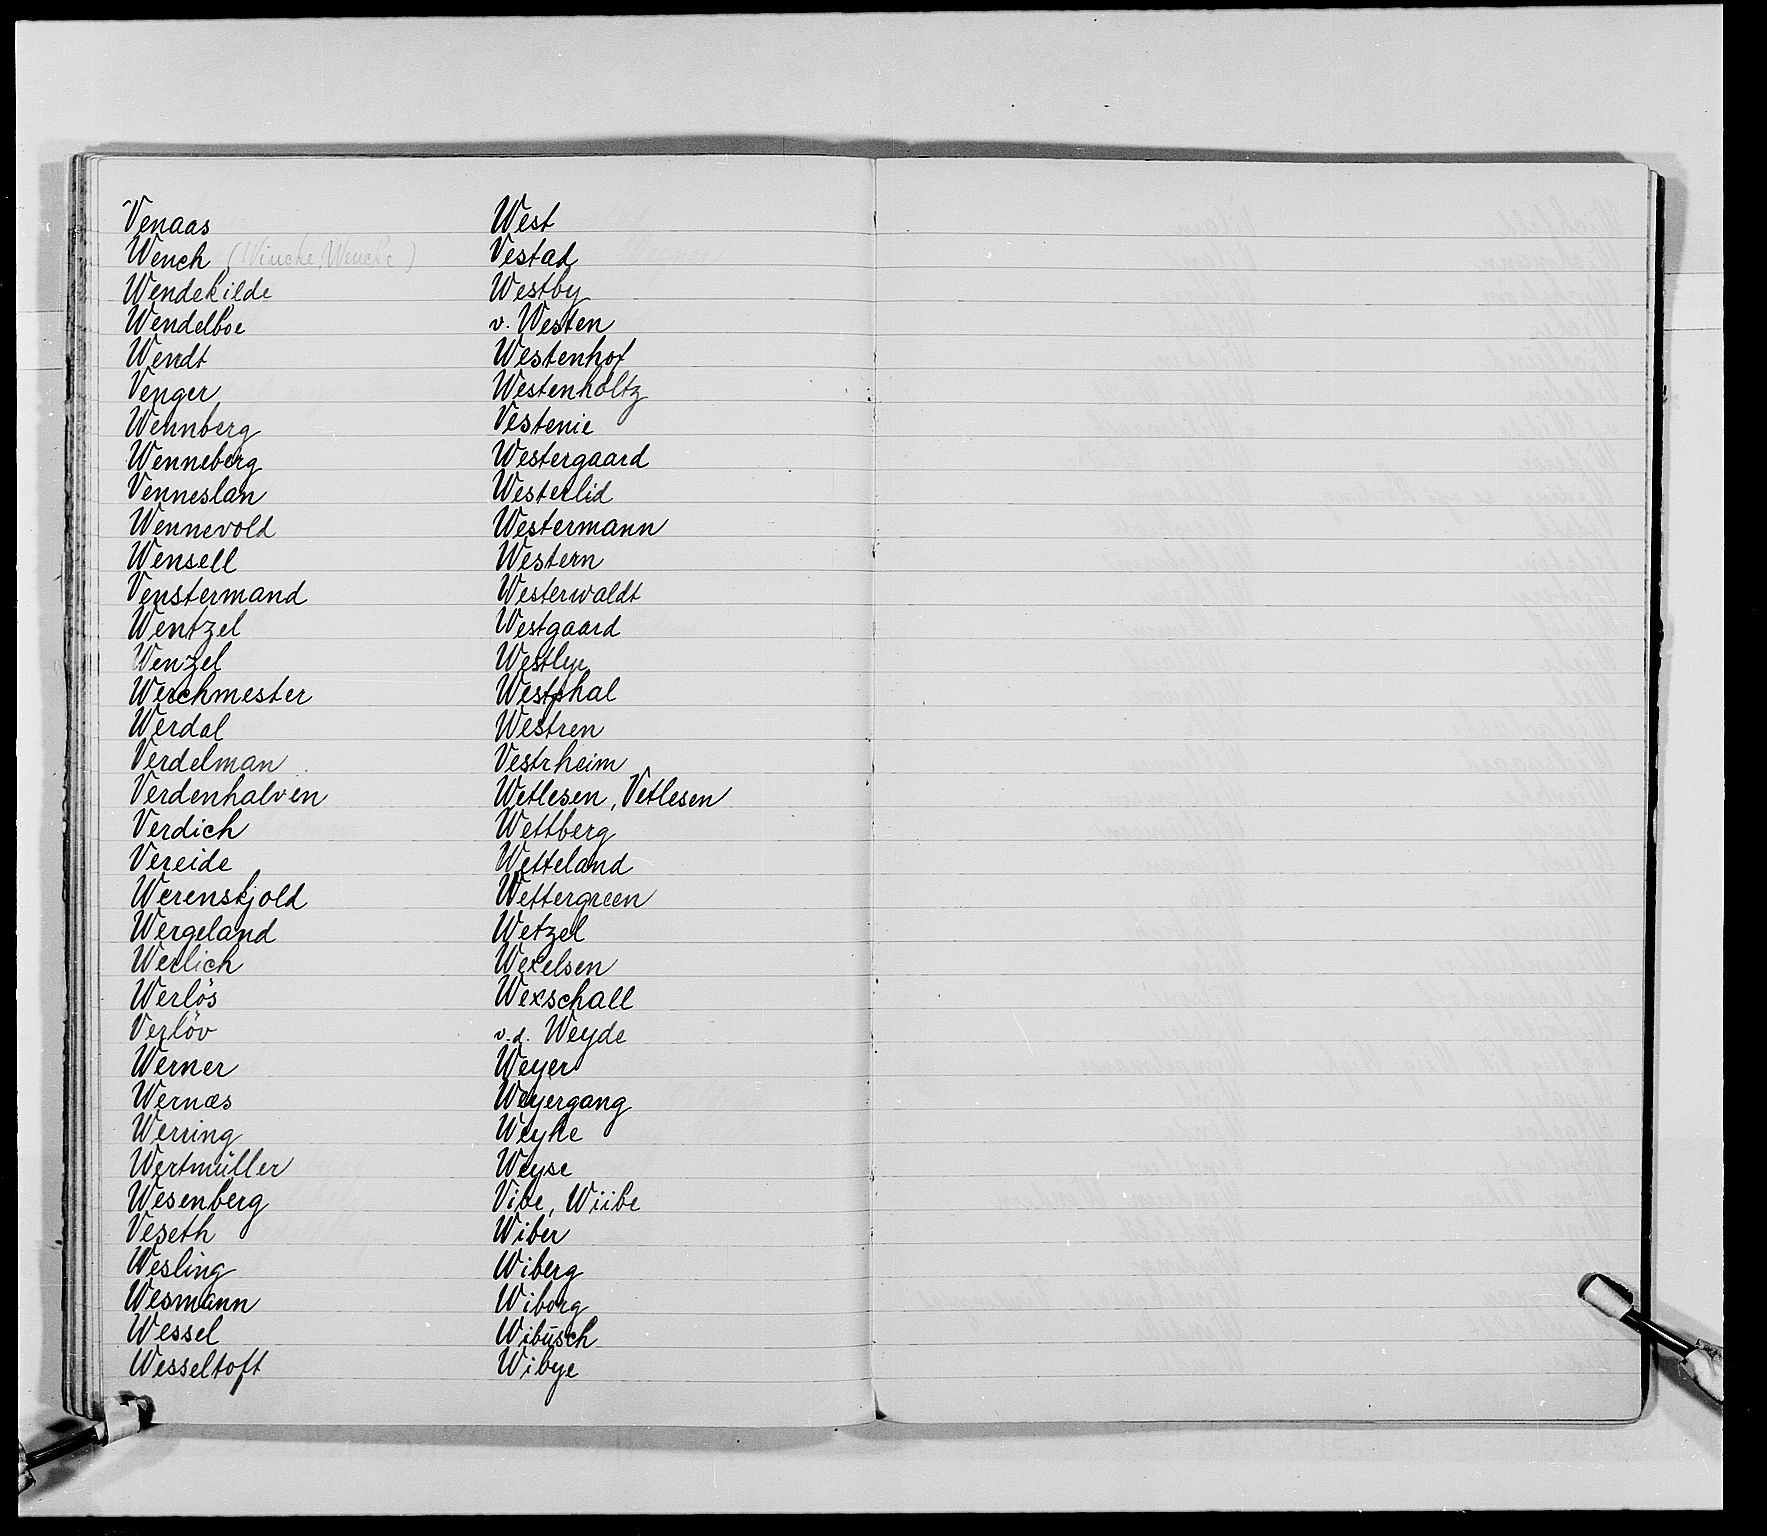 Venaas
Wench (Vincke, Wencke)
Wendekilde
Wendelboe
Wendt
Venger
Wennberg
Wenneberg
Venneslan
Wennevold
Wensell
Venstermand
Wentzel
Wenzel
Werchmester
Werdal
Verdelman
Verdenhalven
Verdich
Vereide
Werenskjold
Wergeland
Werlich
Werlös
Verlöv
Werner
Wernæs
Werring
Wertmüller
Wesenberg
Veseth
Wesling
Wesmann
Wessel
Wesseltoft
West
Vestad
Westby
v. Westen
Westenhof
Westenholtz
Vestenie
Westergaard
Westerlid
Westermann
Western
Westerwaldt
Westgaard
Westlye
Westphal
Westren
Vestrheim
Wetlesen, Vetlesen
Wettberg
Wetteland
Wettergreen
Wetzel
Wexelsen
Wexschall
v.d. Weyde
Weyer
Weyergang
Weyhe
Weyse
Vibe, Wiibe
Wiber
Wiberg
Wiborg
Wibusch
Wibye